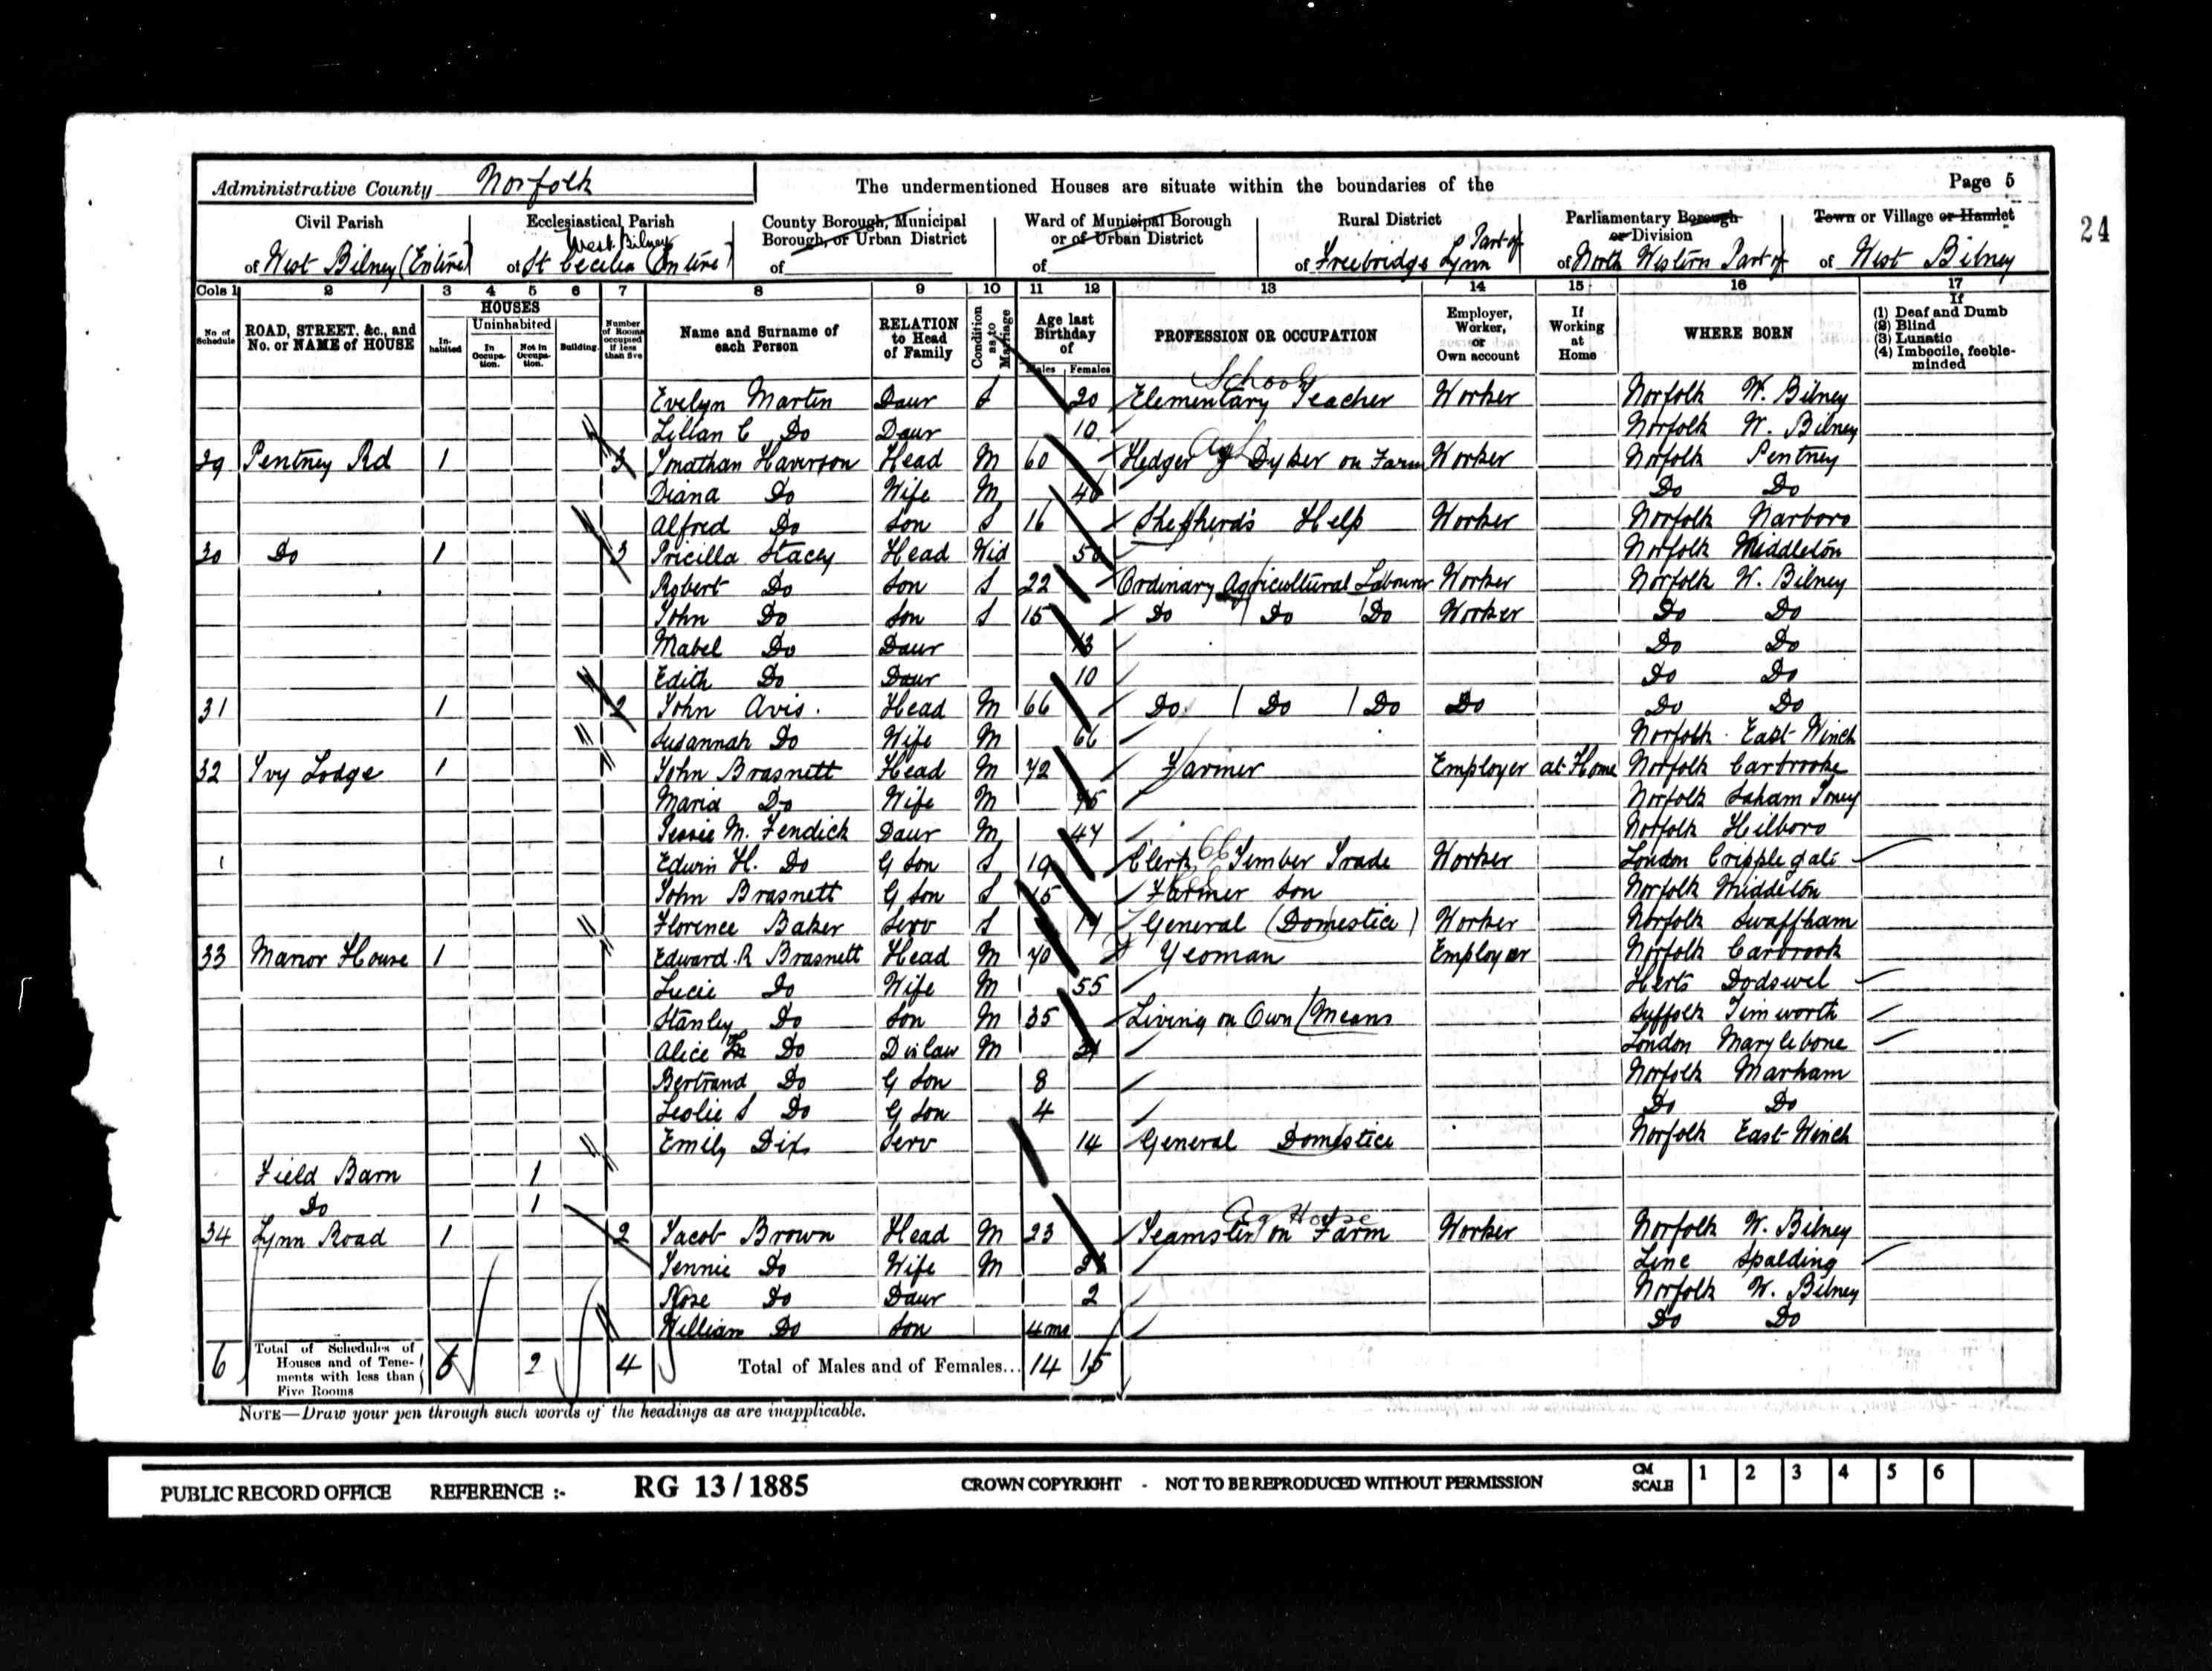 Administrative County Norfolk The undermentioned Houses are situate within the boundaries of the Page 5
24
Civil Parish Ecclesiastical Parish County Borough, Municipal Borough, or Urban District Ward of Municipal Borough or of Urban District Rural District Parliamentary Borough or Division Town or Village or Hamlet
of West Bilney (Entire) of St Cecilia West Bilney (Entire) of of of Freebridge Lynn Part of of North Western Part of of West Bilney
Cols 1 2 3 4 5 6 7 8 9 10 11 12 13 14 15 16 17
No of Schedule ROAD, STREET, &c., and No. or NAME of HOUSE HOUSES Inhabited Uninhabited In Occupation. Not in Occupation. Building. Number of Rooms occupied if less than five Name and Surname of each Person RELATION to Head of Family Condition as to Marriage Age last Birthday of Males Females PROFESSION OR OCCUPATION Employer, Worker, or Own account If Working at Home WHERE BORN If (1) Deaf and Dumb (2) Blind (3) Lunatic (4) Imbecile, feeble-minded
Evelyn Martin Daur S 20 Elementary School Teacher Worker Norfolk W. Bilney
Lilian C Do Daur 10 Norfolk W. Bilney
29 Pentney Rd 1 3 Jonathan Haverson Head M 60 Hedger & Dyker on Farm Ag Worker Norfolk Pentney
Diana Do Wife M Do Do
Alfred Do Son S 16 Shepherd's Help Worker Norfolk Narboro
30 Do 1 3 Pricilla Stacey Head Wid Norfolk Middleton
Robert Do Son S 22 Ordinary Agricultural Labourer Worker Norfolk W. Bilney
John Do Son S 15 Do Do Do Worker Do Do
Mabel Do Daur 13 Do Do
Edith Do Daur 10 Do Do
31 1 2 John Avis. Head M 66 Do Do Do Do Do Do
Susannah Do Wife M 66 Norfolk East Winch
32 Ivy Lodge 1 John Brasnett Head M 72 Farmer Employer at Home Norfolk Carbrooke
Maria Do Wife M 75 Norfolk Saham Toney
Jessie M. Fendick Daur M 47 Norfolk Hilboro
Edwin H. Do G Son S 19 Clerk Timber Trade Worker London Cripplegate
John Brasnett G Son S 15 Farmer Son Norfolk Middleton
Florence Baker Serv S 17 General (Domestice) Worker Norfolk Swaffham
33 Manor House 1 Edward R Brasnett Head M 70 Yeoman Employer Norfolk Carbrook
Lucie Do Wife M 55 Herts Dodswel
Stanley Do Son M 35 Living on Own Means Suffolk Timworth
Alice Do D in law M London Marylebone
Bertrand Do G Son 8 Norfolk Marham
Leslie S Do G Son 4 Do Do
Emily Dix Serv 14 General Domestice Norfolk East Winch
Field Barn 1
Do 1
34 Lynn Road 1 2 Jacob Brown Head M 23 Teamster on Farm Ag Horse Worker Norfolk W. Bilney
Jennie Do Wife M Linc Spalding
Rose Do Daur 2 Norfolk W. Bilney
William Do Son 4 mo Do Do
6 Total of Schedules of Houses and of Tenements with less than Five Rooms 6 2 4 Total of Males and of Females... 14 15
NOTE—Draw your pen through such words of the headings as are inapplicable.
PUBLIC RECORD OFFICE REFERENCE :- RG 13 / 1885 CROWN COPYRIGHT - NOT TO BE REPRODUCED WITHOUT PERMISSION CM SCALE 1 2 3 4 5 6